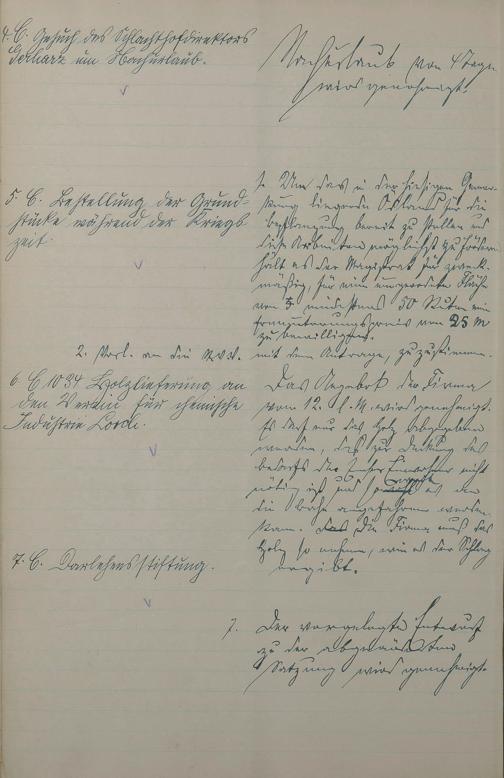 4. C. Gesuch des Schlachthofdirektors
Gerharz um Nachurlaub.
Nachurlaub von 4 Tagen
wird genehmigt.
5. C. Bestellung der Grund-
stücke während der Kriegs
zeit.
1. Um das in der hiesigen Gemar-
kung liegende Ödland für die
bereit zu stellen und
diese Arbeiten möglichst zu fördern
hält es der Magistrat für zweck-
mäßig, für eine umgerodete Fläche
von mindestens 50 Ruten ein
von 25 M
zu bewilligen.
2. Vorl. an die
mit dem Antrage, zuzustimmen.
6 C 1034 Holzlieferung an
den Verein für chemische
Industrie Lorch.
Das Angebot der Firma
vom 12. l. M. wird genehmigt.
Es darf nur das Holz abgegeben
werden, das zur Deckung des
Bedarfs der Einwohner nicht
nötig ist und es an
die Bahn angefahren werden
kann. Die Firma muß das
Holz so nehmen, wie es der Schlag
ergibt.
7. C. Darlehensstiftung.
7. Der vorgelegte Entwurf
zu der abgeänderten
Satzung wird genehmigt.